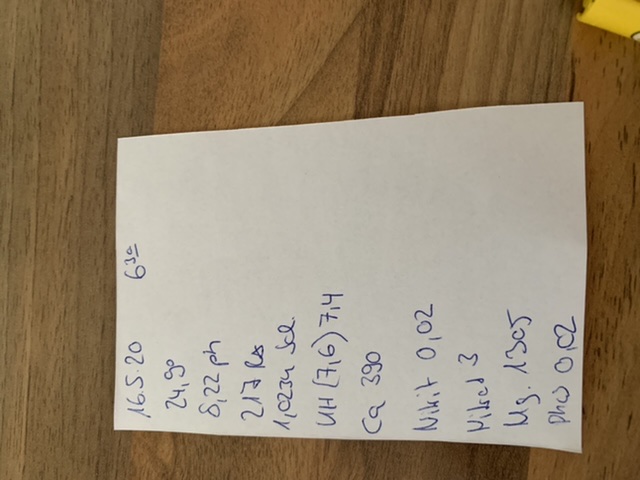 16.5.20 6³⁰
24,9°
8,22 ph
217 Res
1,0234 Sal.
KH (7,6) 7,4
Ca 390
Nitrit 0,02
Nitrat 3
Mg. 1305
Pho 0,02